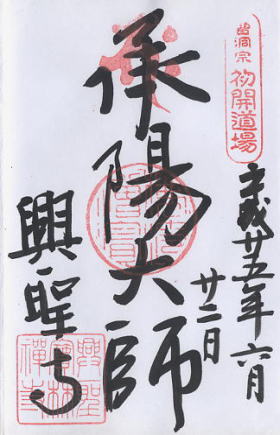 曹洞宗
初開道場
平成廿五年六月
廿二日
承陽大師
興聖寺
興聖
寶林
禪寺